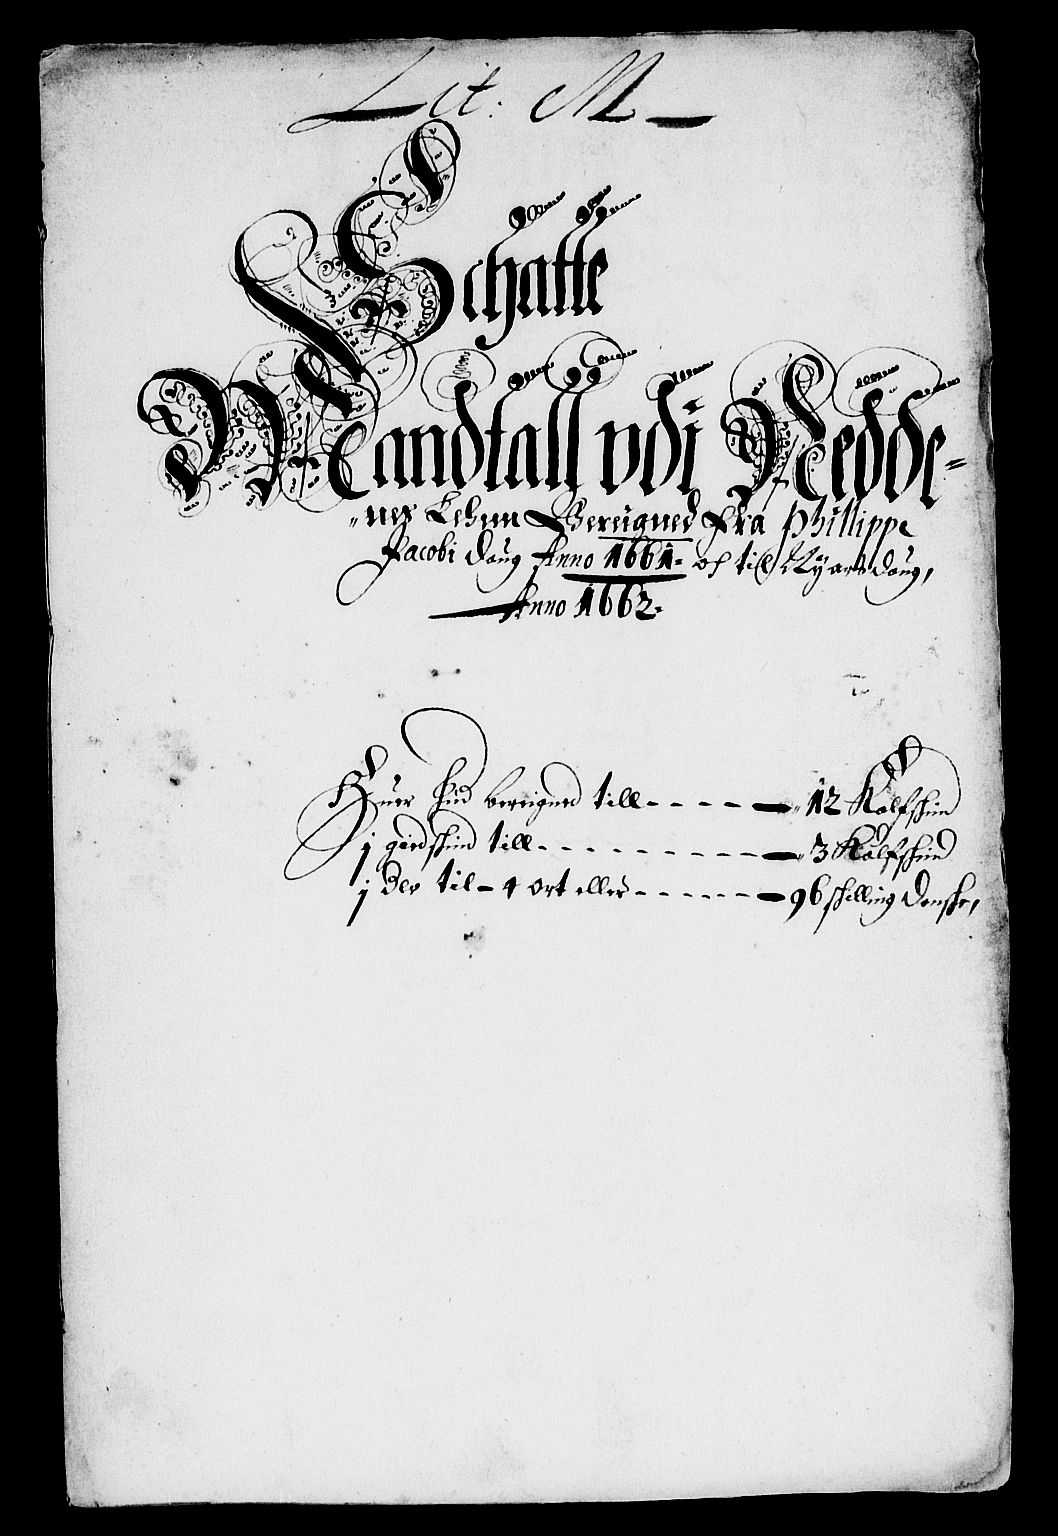 Lit: M
Schatte
Mandtall vdi Nedde-
nes Lehnn Bereigned Fra Phillippe
Jacobi daug Anno 1661. och till Nÿ aars daug,
Anno 1662.
Huer hud bereigned till - - - - - 12 Kalfskind
j giedskind till - - - - - - - - - 3 Kalfskind
j dlr til - 4 ort eller - - - - - - 96 skelling danske,